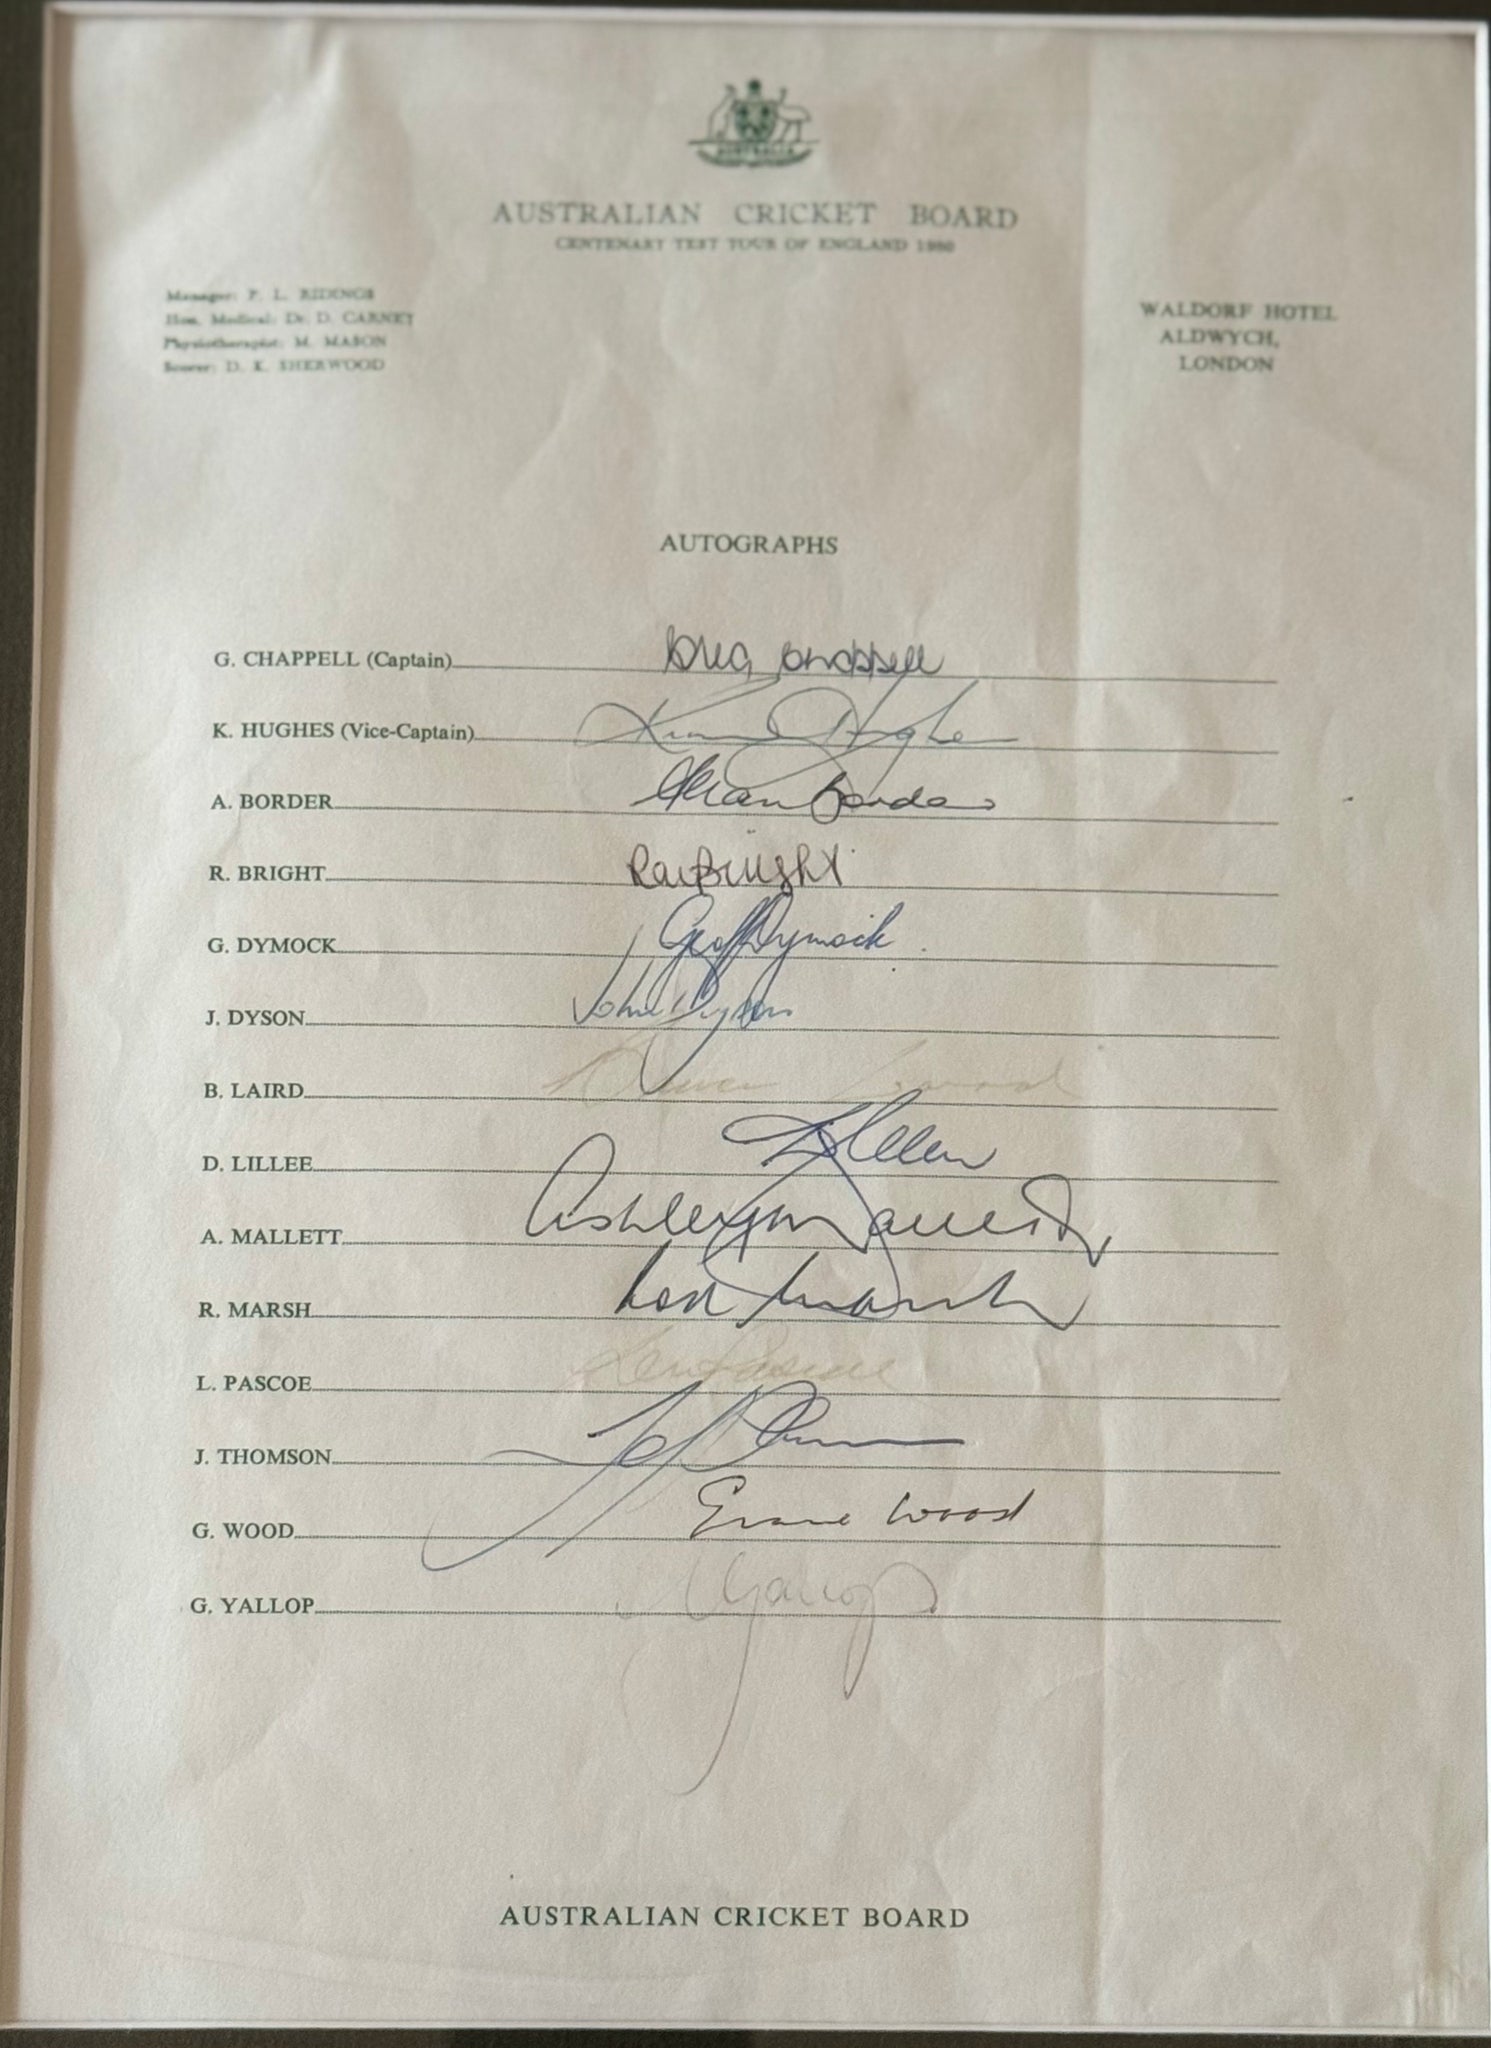 AUSTRALIA
AUSTRALIAN CRICKET BOARD
CENTENARY TEST TOUR OF ENGLAND 1980
Manager: P. L. RIDINGS
Hon. Medical: Dr. D. CARNEY
Physiotherapist: M. MASON
Scorer: D. K. SHERWOOD
WALDORF HOTEL
ALDWYCH,
LONDON
AUTOGRAPHS
G. CHAPPELL (Captain) Greg Chappell
K. HUGHES (Vice-Captain) Kim Hughes
A. BORDER Allan Border
R. BRIGHT Ray Bright
G. DYMOCK Geoff Dymock
J. DYSON John Dyson
B. LAIRD
D. LILLEE D Lillee
A. MALLETT Ashley Mallett
R. MARSH Rod Marsh
L. PASCOE Len Pascoe
J. THOMSON
G. WOOD Graeme Wood
G. YALLOP G Yallop
AUSTRALIAN CRICKET BOARD